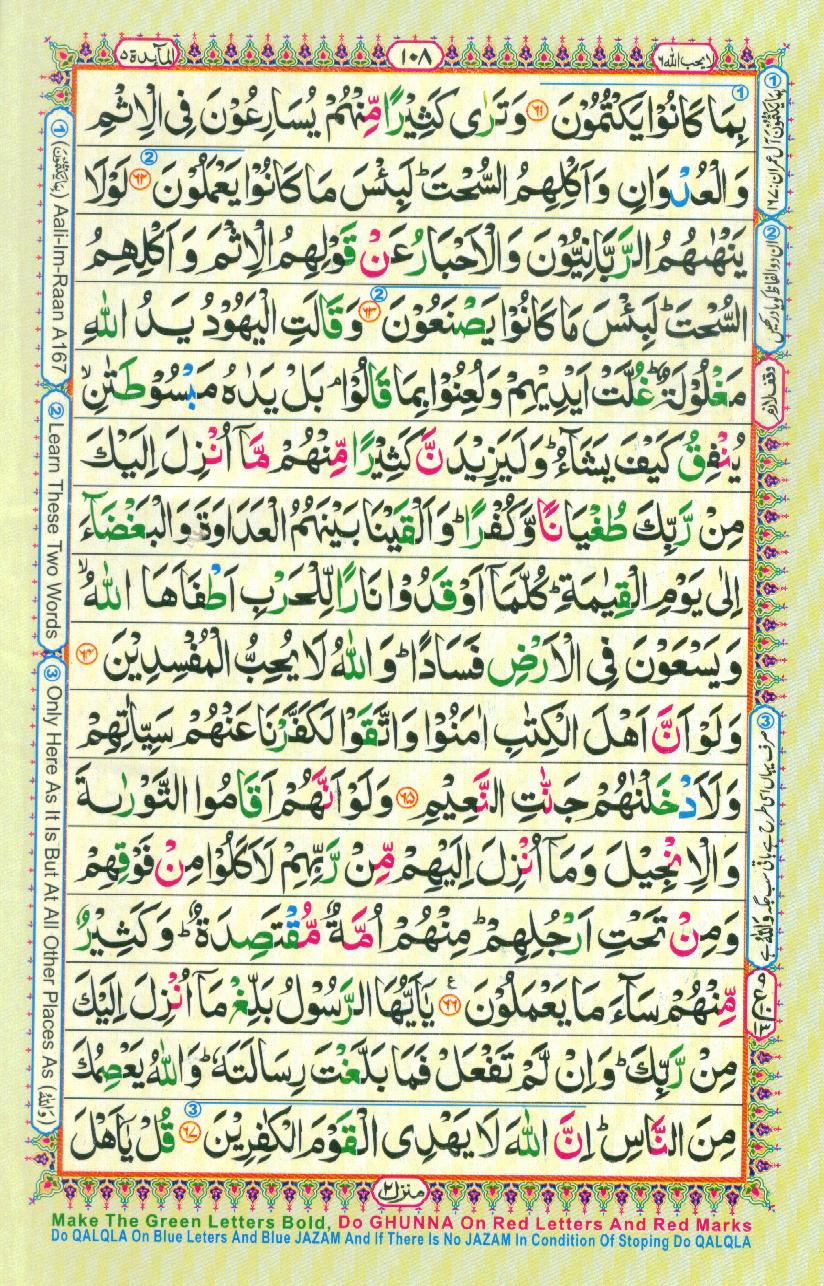 المآىدة ۵
١٠٨
لا يحب الله ٦
بِمَا كَانُوْا يَكْتُمُوْنَ ﴿٦١﴾ وَتَرٰى كَثِيْرًا مِّنْهُمْ يُسَارِعُوْنَ فِى الْاِثْمِ
وَالْعُدْوَانِ وَاَكْلِهِمُ السُّحْتَ ؕ لَبِئْسَ مَا كَانُوْا يَعْمَلُوْنَ ﴿٦٢﴾ لَوْلَا
يَنْهٰىهُمُ الرَّبَّانِيُّوْنَ وَالْاَحْبَارُ عَنْ قَوْلِهِمُ الْاِثْمَ وَاَكْلِهِمُ
السُّحْتَ ؕ لَبِئْسَ مَا كَانُوْا يَصْنَعُوْنَ ﴿٦٣﴾ وَقَالَتِ الْيَهُوْدُ يَدُ اللّٰهِ
مَغْلُوْلَةٌ ؕ غُلَّتْ اَيْدِيْهِمْ وَلُعِنُوْا بِمَا قَالُوْا ۘ بَلْ يَدٰهُ مَبْسُوْطَتٰنِ ۙ
يُنْفِقُ كَيْفَ يَشَآءُ ؕ وَلَيَزِيْدَنَّ كَثِيْرًا مِّنْهُمْ مَّاۤ اُنْزِلَ اِلَيْكَ
مِنْ رَّبِّكَ طُغْيَانًا وَّكُفْرًا ؕ وَاَلْقَيْنَا بَيْنَهُمُ الْعَدَاوَةَ وَالْبَغْضَآءَ
اِلٰى يَوْمِ الْقِيٰمَةِ ؕ كُلَّمَاۤ اَوْقَدُوْا نَارًا لِّلْحَرْبِ اَطْفَاَهَا اللّٰهُ ۙ
وَيَسْعَوْنَ فِى الْاَرْضِ فَسَادًا ؕ وَاللّٰهُ لَا يُحِبُّ الْمُفْسِدِيْنَ ﴿٦٤﴾
وَلَوْ اَنَّ اَهْلَ الْكِتٰبِ اٰمَنُوْا وَاتَّقَوْا لَكَفَّرْنَا عَنْهُمْ سَيِّاٰتِهِمْ
وَلَاَدْخَلْنٰهُمْ جَنّٰتِ النَّعِيْمِ ﴿٦٥﴾ وَلَوْ اَنَّهُمْ اَقَامُوا التَّوْرٰىةَ
وَالْاِنْجِيْلَ وَمَاۤ اُنْزِلَ اِلَيْهِمْ مِّنْ رَّبِّهِمْ لَاَكَلُوْا مِنْ فَوْقِهِمْ
وَمِنْ تَحْتِ اَرْجُلِهِمْ ؕ مِنْهُمْ اُمَّةٌ مُّقْتَصِدَةٌ ؕ وَكَثِيْرٌ
مِّنْهُمْ سَآءَ مَا يَعْمَلُوْنَ ﴿٦٦﴾ ع يٰۤاَيُّهَا الرَّسُوْلُ بَلِّغْ مَاۤ اُنْزِلَ اِلَيْكَ
مِنْ رَّبِّكَ ؕ وَاِنْ لَّمْ تَفْعَلْ فَمَا بَلَّغْتَ رِسَالَتَهٗ ؕ وَاللّٰهُ يَعْصِمُكَ
مِنَ النَّاسِ ؕ اِنَّ اللّٰهَ لَا يَهْدِى الْقَوْمَ الْكٰفِرِيْنَ ﴿٦٧﴾ قُلْ يٰۤاَهْلَ
① بِمَا يَكْتُمُوْنَ آل عمران: ١٦٧
② ان دو الفاظ کو یاد رکھیں
وقف لازم
③ صرف یہاں اسی طرح ہے باقی سب جگہ وَاللّٰهُ ہے
① (بِمَا يَكْتُمُوْنَ) Aali-Im-Raan A167
② Learn These Two Words
③ Only Here As It Is But At All Other Places As (وَاللّٰهُ)
منزل ٢
Make The Green Letters Bold, Do GHUNNA On Red Letters And Red Marks
Do QALQLA On Blue Leters And Blue JAZAM And If There Is No JAZAM In Condition Of Stoping Do QALQLA